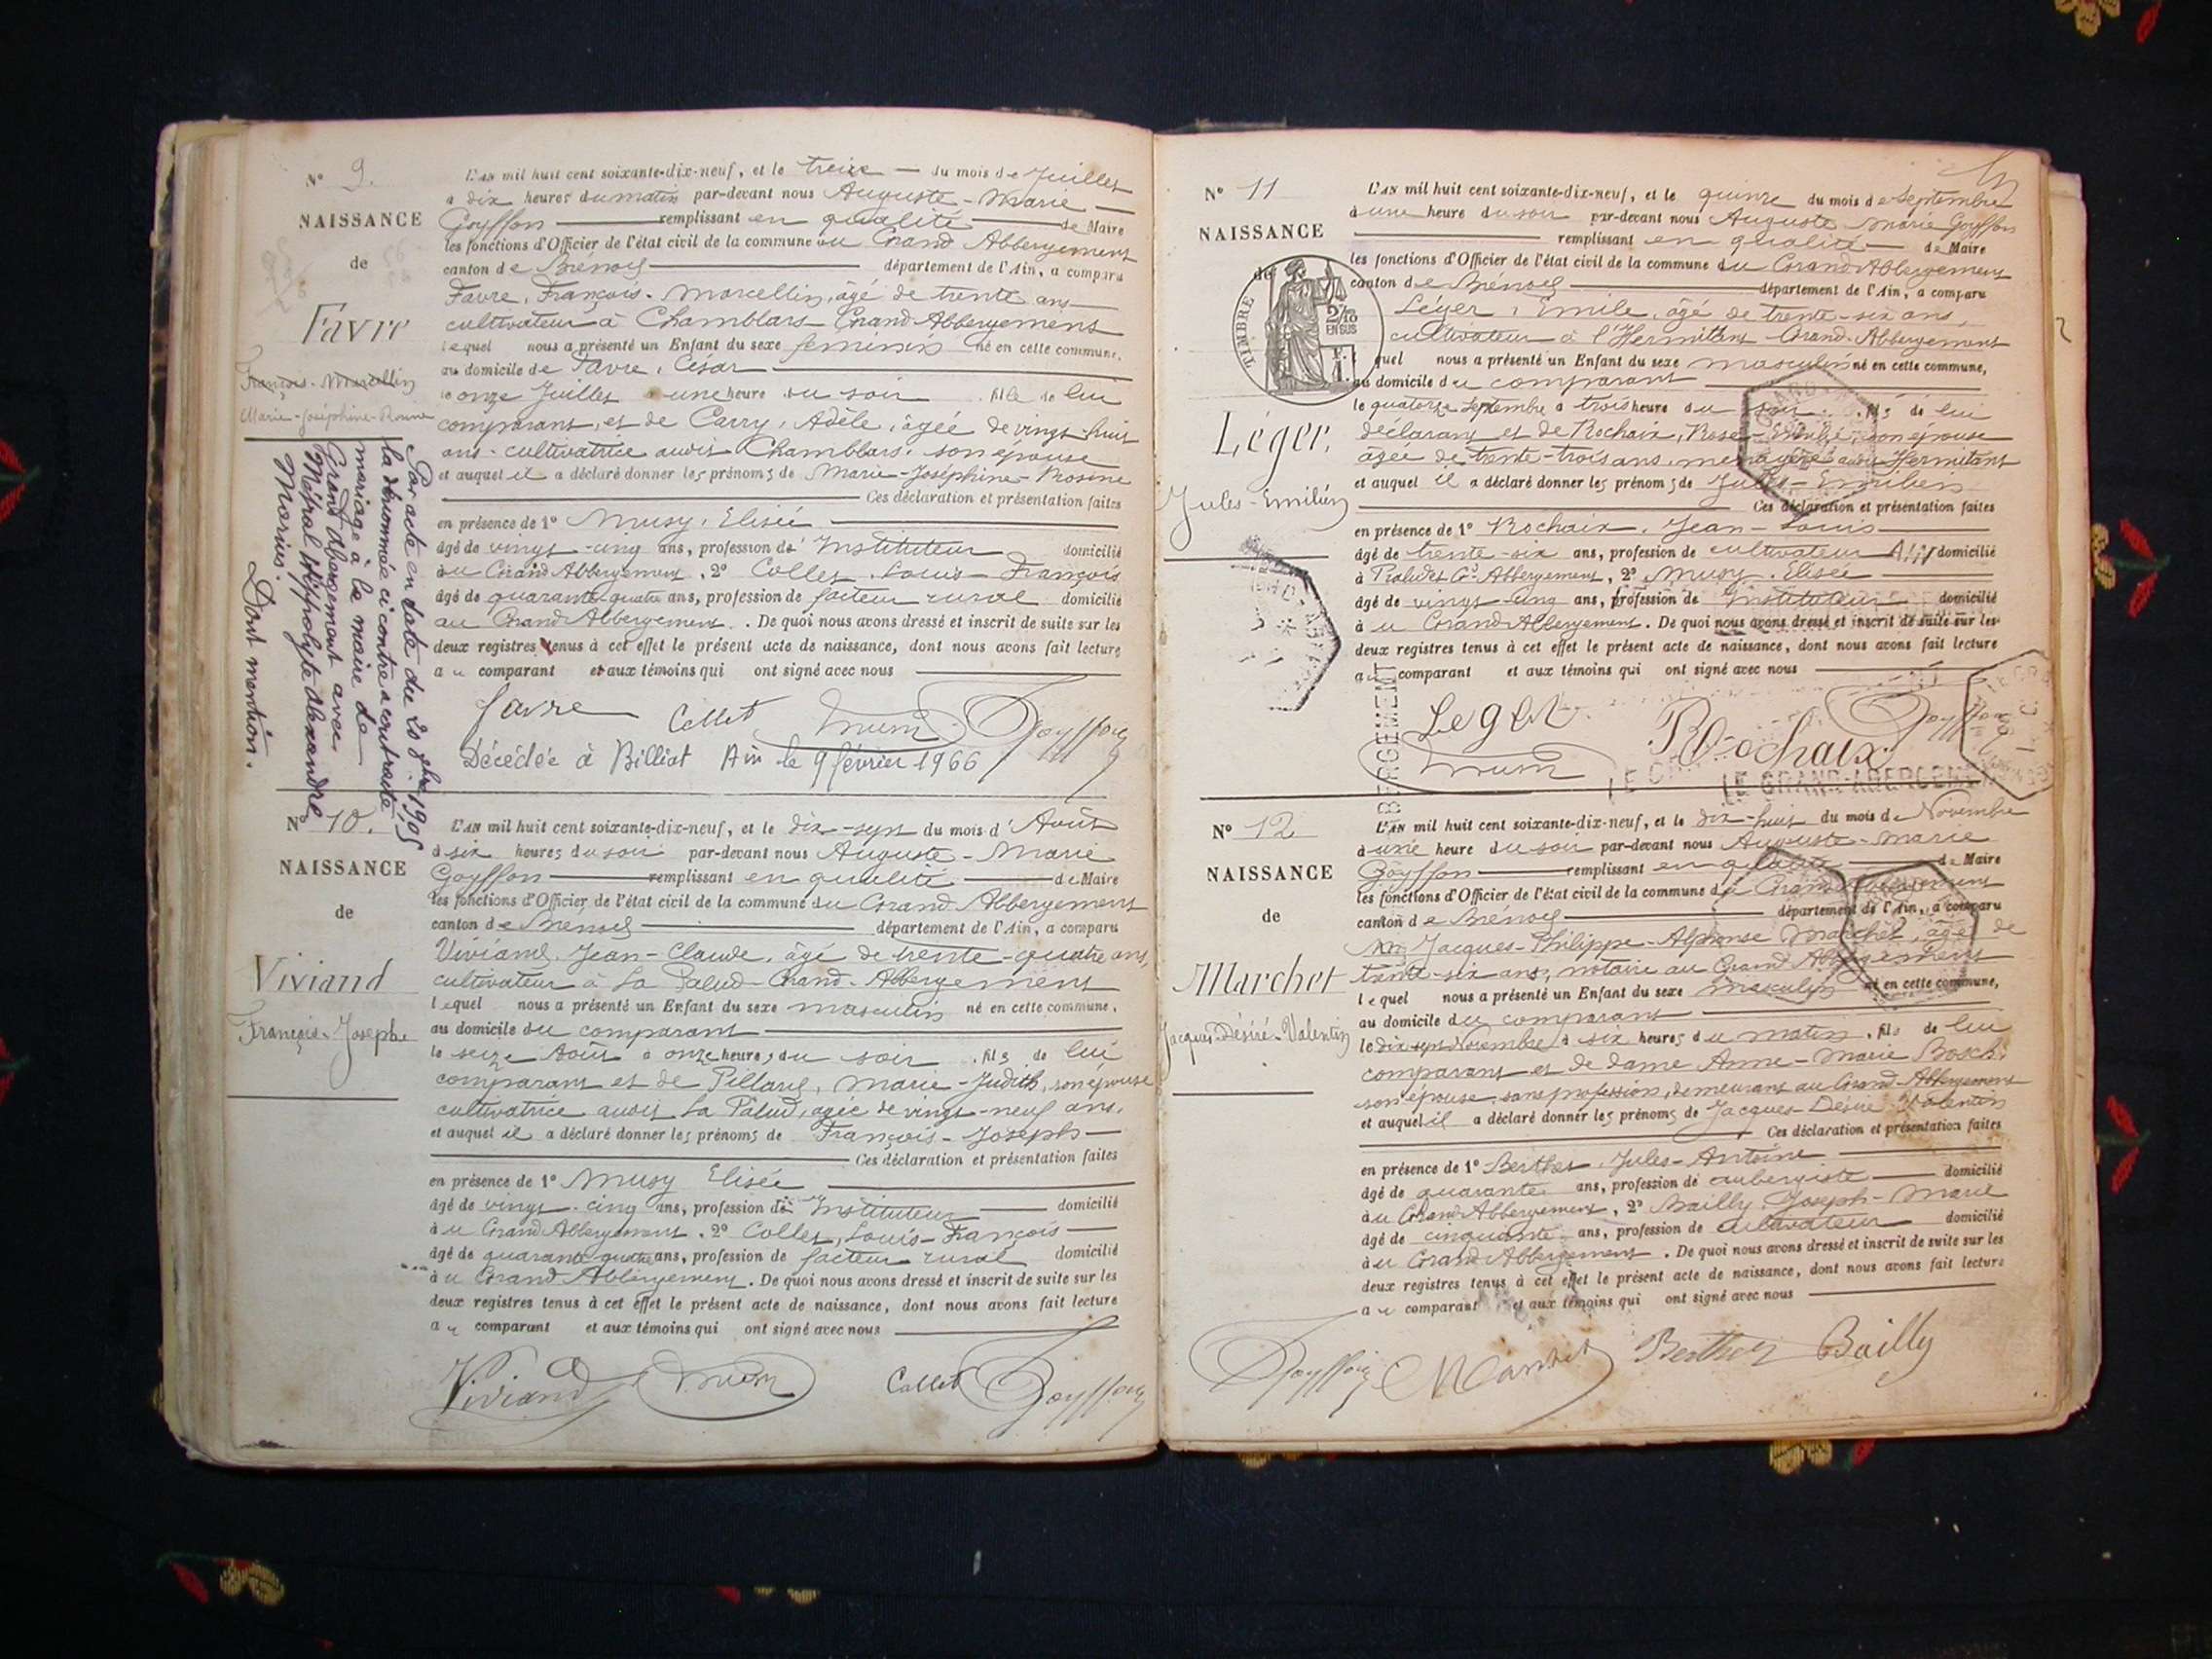 N° 9.
NAISSANCE
de
Favre
François-Marcellin
Marie-Joséphine-Rosine
Par acte en date du 20 9bre 1905
la dénommée ci contre a contracté
mariage à la mairie de
Grand Abergement avec
Méral Hippolyte Alexandre
Marius.
Dont mention.
L'AN mil huit cent soixante-dix-neuf, et le treize du mois de Juillet
à dix heures du matin par-devant nous Auguste-Marie
Goyffon remplissant en qualité de Maire
les fonctions d'Officier de l'état civil de la commune du Grand Abbergement
canton de Brénod département de l'Ain, a comparu
Favre, François-Marcellin, âgé de trente ans
cultivateur à Chamblars Grand-Abbergement
lequel nous a présenté un Enfant du sexe féminin né en cette commune,
au domicile de Favre, César
le onze Juillet à une heure du soir fille de lui
comparant, et de Carry, Adèle, âgée de vingt-huit
ans cultivatrice audit Chamblars, son épouse
et auquel il a déclaré donner les prénoms de Marie-Joséphine-Rosine
Ces déclaration et présentation faites
en présence de 1° Musy, Elisée
âgé de vingt-cinq ans, profession d'Instituteur domicilié
au Grand Abbergement, 2° Collet, Louis-François
âgé de quarante-quatre ans, profession de facteur rural domicilié
au Grand Abbergement. De quoi nous avons dressé et inscrit de suite sur les
deux registres tenus à cet effet le présent acte de naissance, dont nous avons fait lecture
au comparant et aux témoins qui ont signé avec nous
favre Collet Musy Goyffon
Décédée à Billiat Ain le 9 février 1966
N° 10.
NAISSANCE
de
Viviand
François-Joseph
L'AN mil huit cent soixante-dix-neuf, et le dix-sept du mois d'Août
à six heures du soir par-devant nous Auguste-Marie
Goyffon remplissant en qualité de Maire
les fonctions d'Officier de l'état civil de la commune du Grand Abbergement
canton de Brénod département de l'Ain, a comparu
Viviand, Jean-Claude, âgé de trente-quatre ans,
cultivateur à La Palud-Grand-Abbergement
lequel nous a présenté un Enfant du sexe masculin né en cette commune,
au domicile du comparant
le seize Août à onze heures du soir, fils de lui
comparant et de Pilland, Marie-Judith, son épouse
cultivatrice audit La Palud, âgée de vingt-neuf ans,
et auquel il a déclaré donner les prénoms de François-Joseph
Ces déclaration et présentation faites
en présence de 1° Musy Elisée
âgé de vingt-cinq ans, profession d'Instituteur domicilié
au Grand Abbergement, 2° Collet, Louis-François
âgé de quarante-quatre ans, profession de facteur rural domicilié
au Grand Abbergement. De quoi nous avons dressé et inscrit de suite sur les
deux registres tenus à cet effet le présent acte de naissance, dont nous avons fait lecture
au comparant et aux témoins qui ont signé avec nous
Viviand Musy Collet Goyffon
N° 11
NAISSANCE
de
TIMBRE
2/10
EN SUS
Léger,
Jules-Emilien
L'AN mil huit cent soixante-dix-neuf, et le quinze du mois de Septembre
à une heure du soir par-devant nous Auguste Marie Goyffon
remplissant en qualité de Maire
les fonctions d'Officier de l'état civil de la commune du Grand Abbergement
canton de Brénod département de l'Ain, a comparu
Léger, Emile, âgé de trente-six ans,
cultivateur à l'Hermitant Grand-Abbergement
quel nous a présenté un Enfant du sexe masculin né en cette commune,
au domicile du comparant
le quatorze Septembre à trois heure du soir, fils de lui
déclarant et de Rochaix, Rose-Emilie, son épouse
âgée de trente-trois ans, ménagère audit Hermitant
et auquel il a déclaré donner les prénoms de Jules-Emilien
Ces déclaration et présentation faites
en présence de 1° Rochaix, Jean-Louis
âgé de trente-six ans, profession de cultivateur domicilié
à Gd Abbergement, 2° Musy, Elisée
âgé de vingt-cinq ans, profession de Instituteur domicilié
au Grand Abbergement. De quoi nous avons dressé et inscrit de suite sur les
deux registres tenus à cet effet le présent acte de naissance, dont nous avons fait lecture
au comparant et aux témoins qui ont signé avec nous
Leger Rochaix Goyffon
Musy
LE GRAND-ABERGEMENT
N° 12
NAISSANCE
de
Marchet
Jacques-Désiré-Valentin
L'AN mil huit cent soixante-dix-neuf, et le dix-huit du mois de Novembre
à une heure du soir par-devant nous Auguste-Marie
Goyffon remplissant en qualité de Maire
les fonctions d'Officier de l'état civil de la commune du Grand Abbergement
canton de Brénod département de l'Ain, a comparu
Jacques-Philippe-Alphonse Marchet, âgé de
trente-six ans, notaire au Grand Abbergement
lequel nous a présenté un Enfant du sexe masculin né en cette commune,
au domicile du comparant
le dix sept Novembre à six heures du matin, fils de lui
comparant et de dame Anne-Marie Bosch,
son épouse, sans profession, demeurant au Grand-Abbergement
et auquel il a déclaré donner les prénoms de Jacques-Désiré-Valentin
Ces déclaration et présentation faites
en présence de 1° Berthet, Jules-Antoine
âgé de quarante ans, profession de aubergiste domicilié
au Grand Abbergement, 2° Bailly, Joseph-Marie
âgé de cinquante ans, profession de cultivateur domicilié
au Grand Abbergement. De quoi nous avons dressé et inscrit de suite sur les
deux registres tenus à cet effet le présent acte de naissance, dont nous avons fait lecture
au comparant et aux témoins qui ont signé avec nous
Goyffon Marchet Berthet Bailly